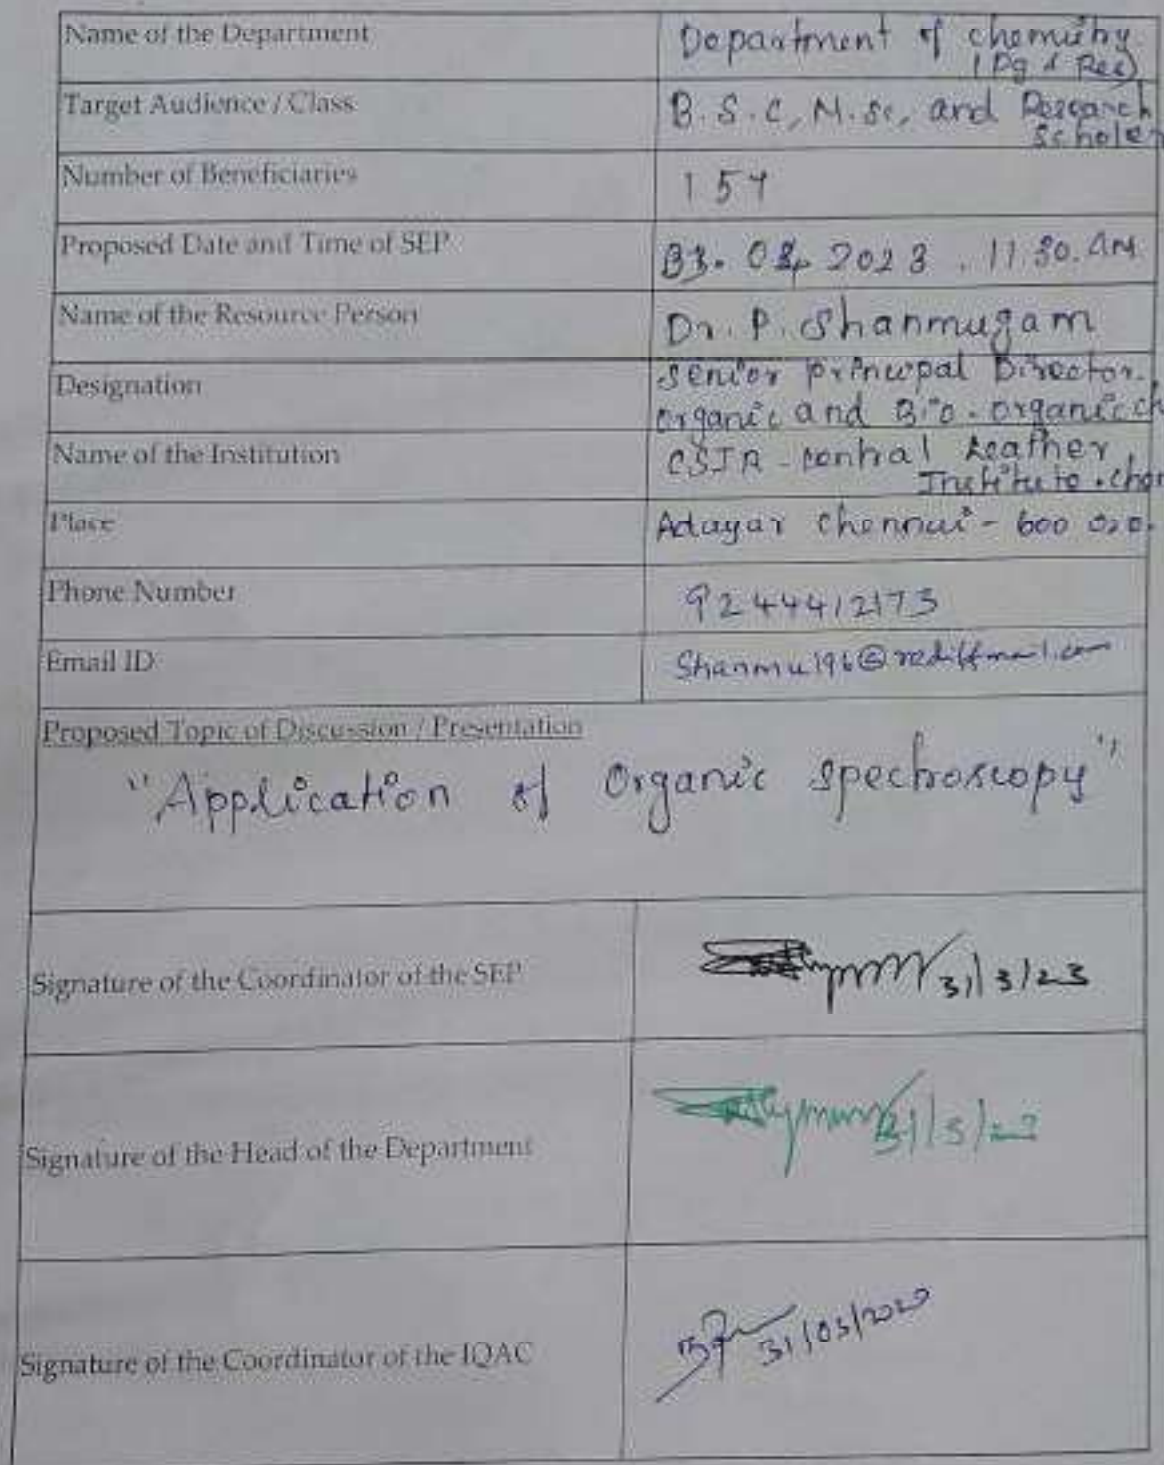 Name of the Department
Department of chemistry
(Pg & Res)
Target Audience / Class
B.S.C, M.Sc, and Research
Scholer
Number of Beneficiaries
Proposed Date and Time of SEP
2023. 11.30. AM
Name of the Resource Person
Dr. P. Shanmugam
Designation
Senior principal Director.
organic and Bio-organic ch
Name of the Institution
CSIR - central Leather
Institute. chen
Place
Adayar Chennai - 600 020.
Phone Number
9244412173
Email ID
Shanmu196@rediffmail.com
Proposed Topic of Discussion / Presentation
"Application of Organic spectroscopy"
Signature of the Coordinator of the SEP
31/3/23
Signature of the Head of the Department
31/3/23
Signature of the Coordinator of the IQAC
31/03/2023